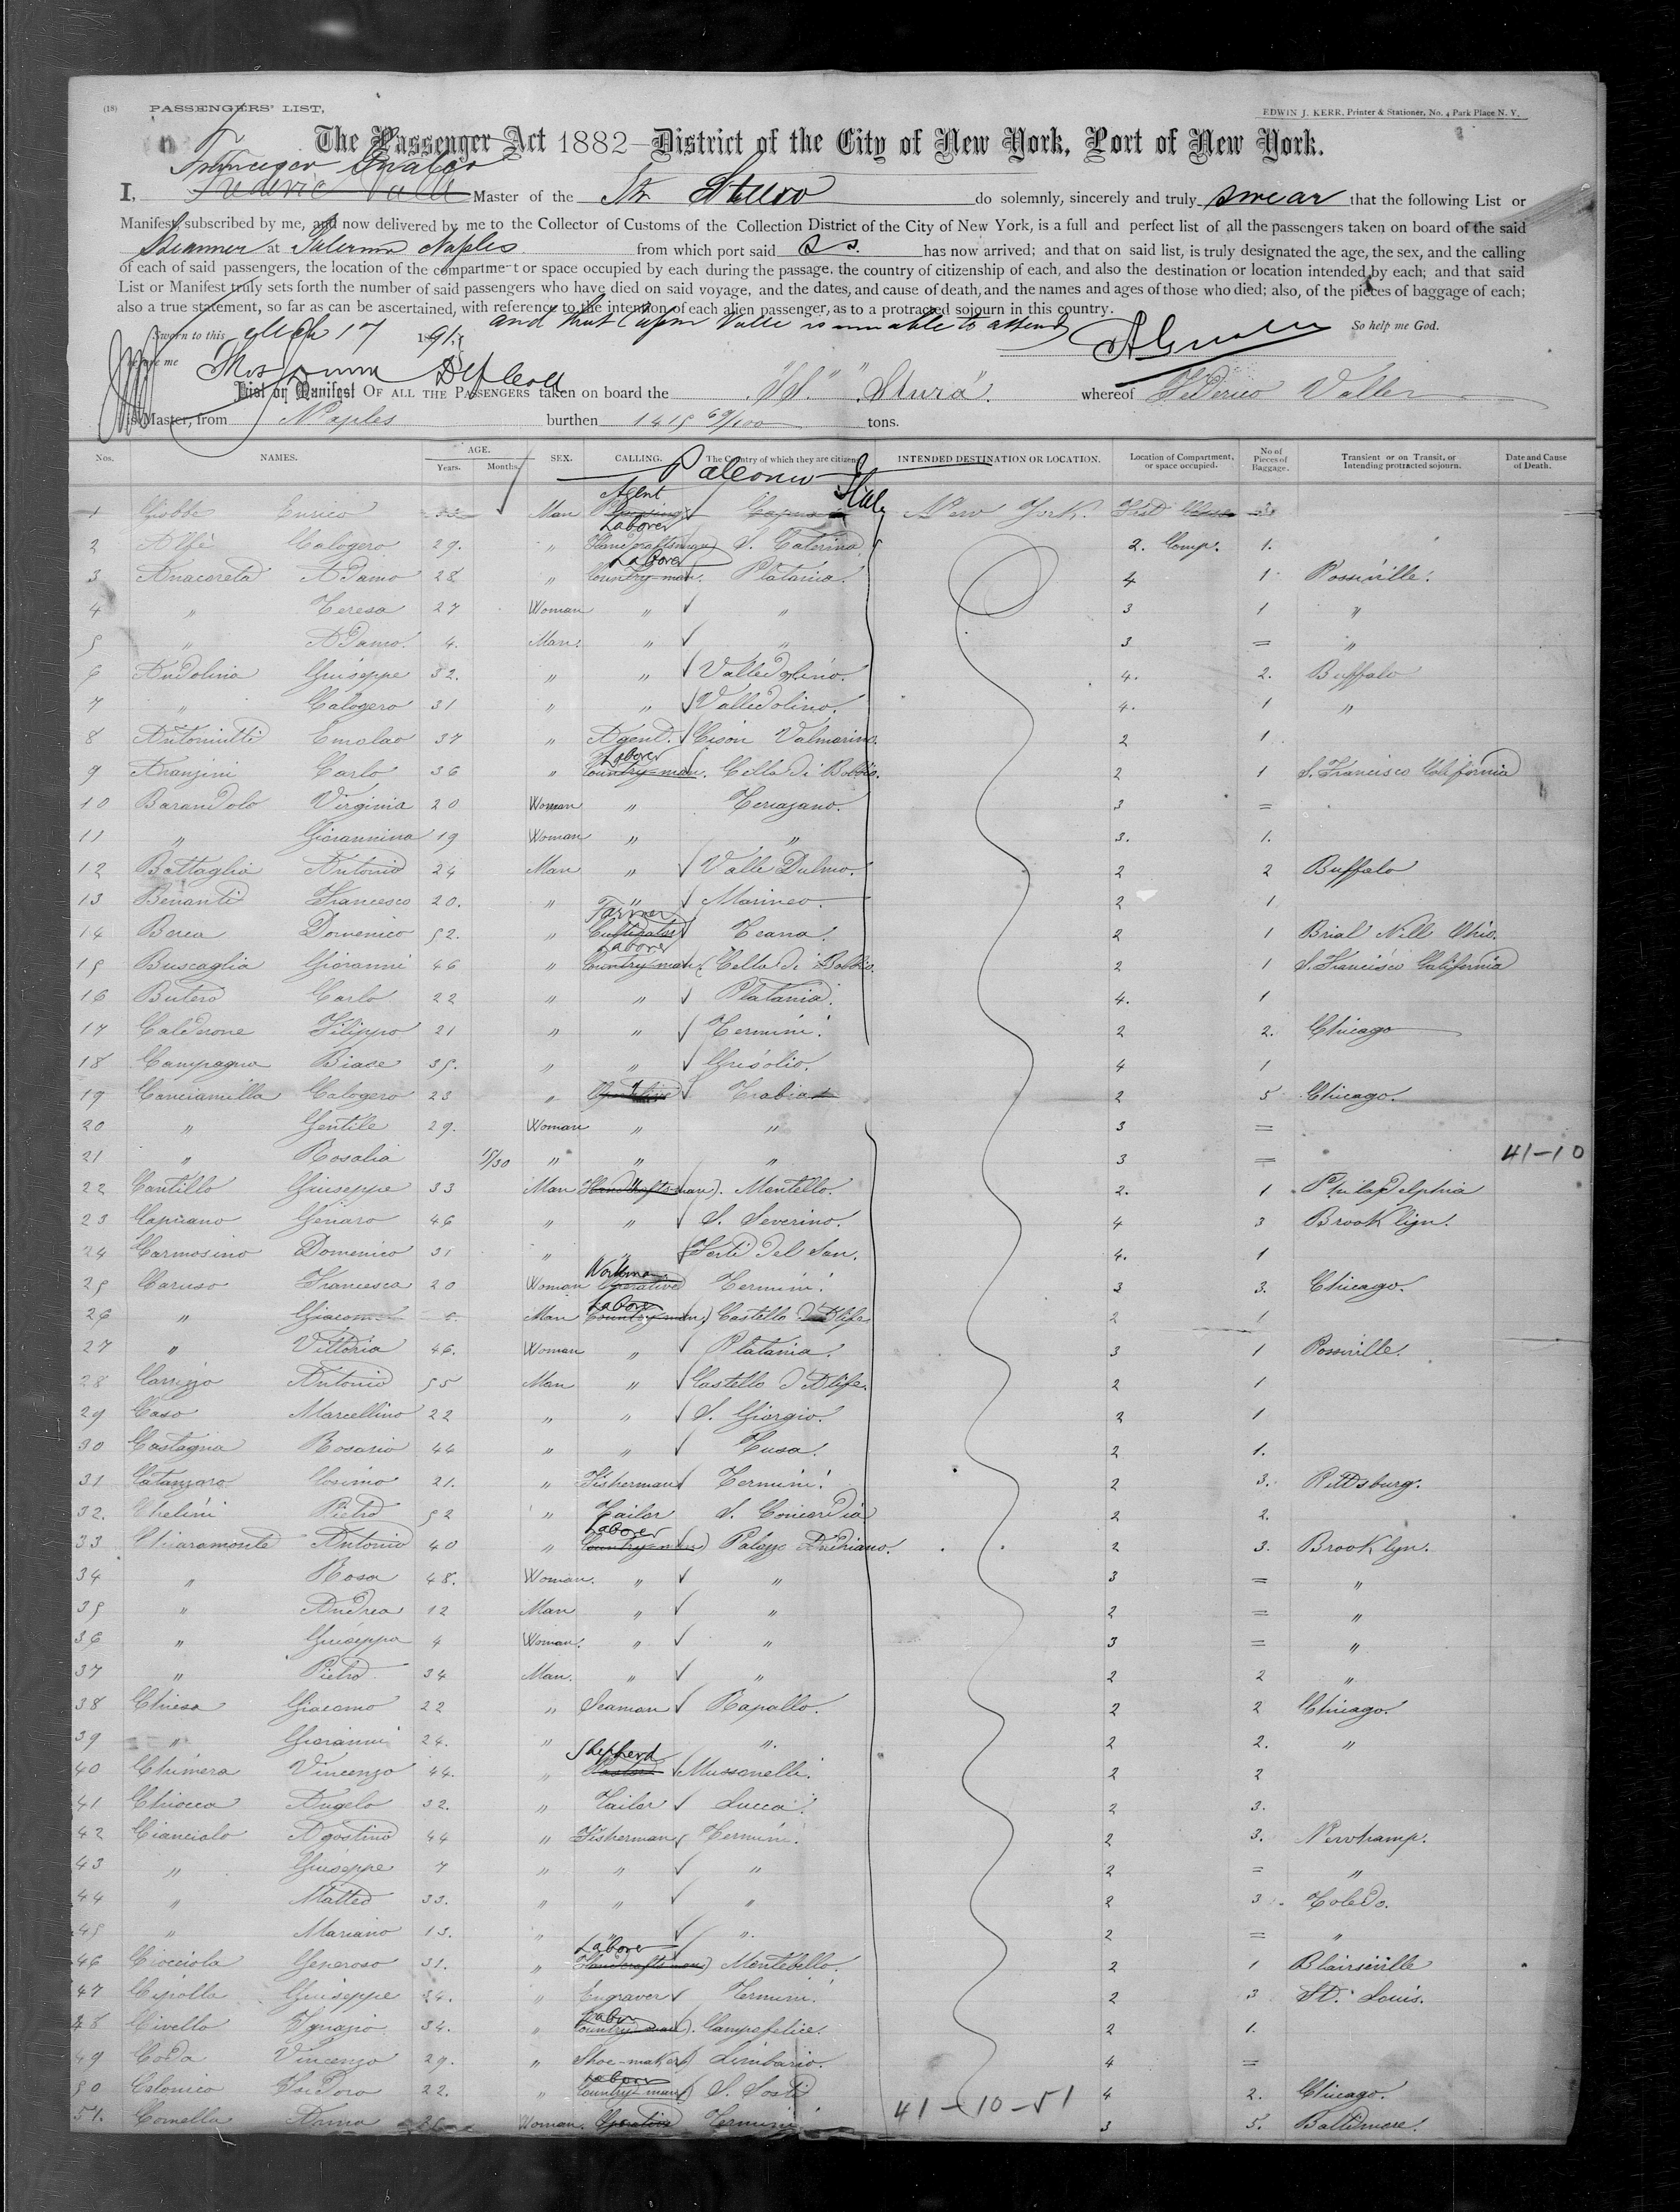 (18) PASSENGERS' LIST. EDWIN J. KERR, Printer & Stationer, No. 4 Park Place N. Y.
The Passenger Act 1882—District of the City of New York, Port of New York.
Francesco
I, Federic Valle Master of the Str Stura do solemnly, sincerely and truly swear that the following List or
Manifest, subscribed by me, and now delivered by me to the Collector of Customs of the Collection District of the City of New York, is a full and perfect list of all the passengers taken on board of the said
Steamer at Palermo Naples from which port said S S. has now arrived; and that on said list, is truly designated the age, the sex, and the calling
of each of said passengers, the location of the compartment or space occupied by each during the passage, the country of citizenship of each, and also the destination or location intended by each; and that said
List or Manifest truly sets forth the number of said passengers who have died on said voyage, and the dates, and cause of death, and the names and ages of those who died; also, of the pieces of baggage of each;
also a true statement, so far as can be ascertained, with reference to the intention of each alien passenger, as to a protracted sojourn in this country.
and that Capn Valle is unable to attend
Sworn to this Mch 17 1891. So help me God.
before me
List or Manifest OF ALL THE PASSENGERS taken on board the "SS." "Stura". whereof Federico Valle
is Master, from Naples burthen 1415 69/100 tons.
Nos. NAMES. AGE. Years. Months. SEX. CALLING. The Country of which they are citizens INTENDED DESTINATION OR LOCATION. Location of Compartment, or space occupied. No of Pieces of Baggage. Transient or on Transit, or Intending protracted sojourn. Date and Cause of Death.
Palermo
Agent Italy
1 Giobbe Enrico 33 Man New York.
Laborer
2 Alfè Calogero 29. " Handcraftsman S. Caterina 2. Comp. 1.
Laborer
3 Anacoreta Adamo 28 " Country-man. Platania. 4 1 Possiville.
4 " Teresa 27 Woman " " 3 1 "
5 " Adamo. 4. Man. " " 3 = "
6 Andolina Giuseppe 32. " " Valledolino. 4. 2. Buffalo
7 " Calogero 31 " " Valledolino. 4. 1 "
8 Antoniutti 37 " Agent. Cison Valmarino. 2 1
Laborer
9 Aranzini Carlo 36 " Country-man. Cella di Bobbio. 2 1 S. Francisco California
10 Barandolo Virginia 20 Woman " 3 =
11 " Giovannina 19 Woman " " 3. 1.
12 Battaglia Antonio 24 Man " Valle Dulmo. 2 2 Buffalo
13 Benanti Francesco 20. " " Marineo. 2 1
Farmer
14 Berca Domenico 52. " Cultivator Teana. 2 1 Brial Nill Ohio.
Laborer
15 Buscaglia Giovanni 46 " Country-man Cella di Bobbio. 2 1 S. Francisco California
16 Butera Carlo 22 " " Platania. 4. 1
17 Calderone Filippo 21 " " Termini. 2 2. Chicago
18 Campagna Biase 35. " " Grisolio. 4 1
19 Canciamilla Calogero 23 " Trabia 2 5 Chicago.
20 " Gentile 29. Woman " " 3 =
21 " Rosalia 15/30 " " " 3 = 41-10
22 Cantillo Giuseppe 33 Man Handcraftsman. Montello. 2. 1 Philadelphia
23 Capuano Genaro 46 " " S. Severino. 4 3 Brooklyn.
24 Carmosino Domenico 31 " " Forli del San. 4. 1
25 Caruso Francesca 20 Woman Operative Termini. 3 3. Chicago.
Labore
26 " Man Country-man. Castello d'Alife 2 1
27 " Vittoria 46. Woman " Platania. 3 1 Possiville.
28 Carrizzo Antonio 55 Man " Castello d'Alife. 2 1
29 Caso Marcellino 22 " " S. Giorgio. 2 1
30 Castagna Rosario 44 " " Tusa. 2 1.
31 Catanzaro Cosimo 21. " Fisherman Termini. 2 3. Pittsburg.
32. Chelini Pietro 52 " Tailor S. Concordia 2 2.
Laborer
33 Chiaramonte Antonio 40 " Country-man Palazzo Adriano. 2 3. Brooklyn.
34 " Rosa 48. Woman. " " 3 = "
35 " Andrea 12 Man " " 2 = "
36 " Giuseppa 4 Woman. " " 3 = "
37 " Pietro 34 Man. " " 2 2 "
38 Chiesa Giacomo 22 " Seaman Rapallo. 2 2 Chicago.
39 " Giovanni 24. " ". 2 2. "
Shepherd
40 Chimera Vincenzo 44. " Pastor Mussomelli. 2 2
41 Chiocca Angelo 32. " Tailor Lucca. 2 3.
42 Cianciolo Agostino 44 " Fisherman Termini. 2 3. Newhamp.
43 " Giuseppe 7 " " " 2 = "
44 " Matteo 33. " " " 2 3. Toledo.
45 " Mariano 13. " " ". 2 = "
Laborer
46 Ciocciola Generoso 31. " Handcraftsman Montebello. 2 1 Blairsiville
47 Cipolla Giuseppe 34. " Engraver Termini. 2 3 St. Louis.
Labor
48 Civello Ignazio 34. " Country-man. Campofelice. 2 1.
49 Coda Vincenzo 29. " Shoe-maker Limbario. 4 =
Labor
50 Colonico Isidoro 22. " Country-man S. Sosti 4 2. Chicago.
51. Comella Anna 26 Woman. Operative Termini. 41-10-51 3 5. Baltimore.